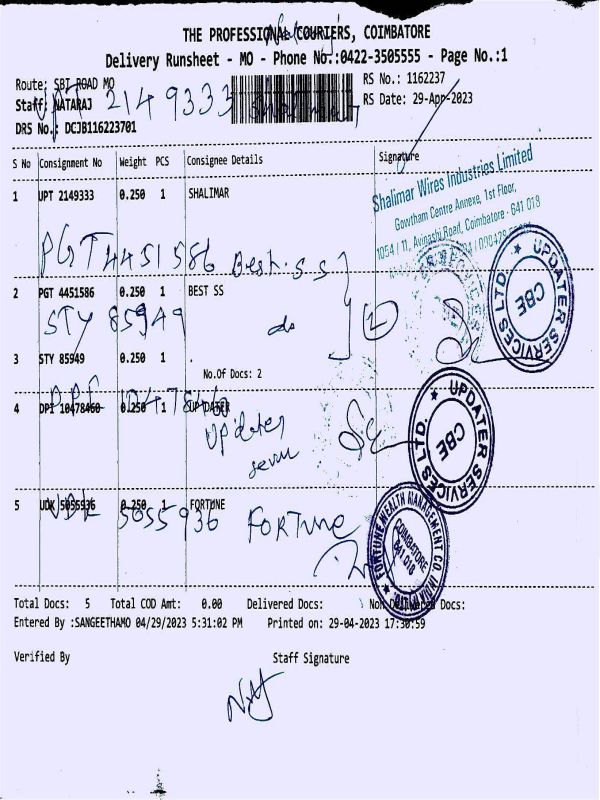 THE PROFESSIONAL COURIERS, COIMBATORE
Delivery Runsheet - MO - Phone No.:0422-3505555 - Page No.:1
Route: SBI ROAD MO
RS No.: 1162237
Staff: NATARAJ
UPT 2149333 Shalimar
RS Date: 29-Apr-2023
DRS No.: DCJB116223701
S No Consignment No Weight PCS Consignee Details Signature
Shalimar Wires Industries Limited
Gowtham Centre Annexe, 1st Floor,
1054 / 11, Avinashi Road, Coimbatore - 641 018
1 UPT 2149333 0.250 1 SHALIMAR
PGT 4451586 Best. S S
2 PGT 4451586 0.250 1 BEST SS
STY 85949 do 2
UPDATER SERVICES LTD. CBE
3 STY 85949 0.250 1 .
No.Of Docs: 2
DPI 10478460
4 DPI 10478460 0.250 1 UPDATER
Updater
UPDATER SERVICES LTD. CBE
5 UDK 5055936 0.250 1 FORTUNE
UDK 5055936 FORTUNE
FORTUNE WEALTH MANAGEMENT CO. INDIA (P) LTD.
COIMBATORE
641 018
Total Docs: 5 Total COD Amt: 0.00 Delivered Docs: Non Delivered Docs:
Entered By :SANGEETHAMO 04/29/2023 5:31:02 PM Printed on: 29-04-2023 17:30:59
Verified By Staff Signature